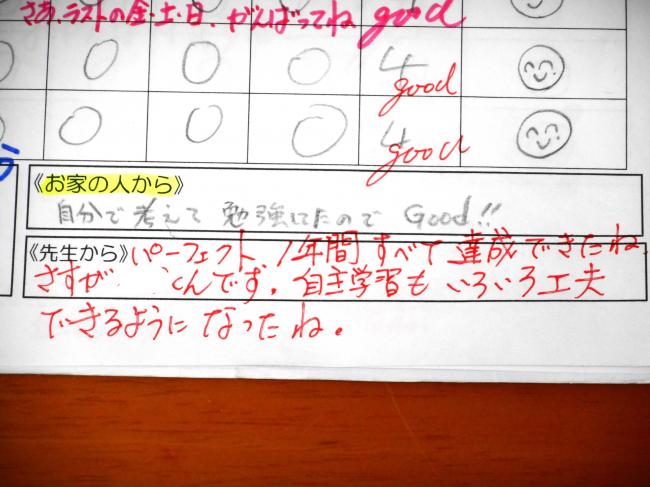 さあ、ラストの金・土・日、がんばってね good
4 good
4 good
う
《お家の人から》
自分で考えて勉強してたので Good!!
《先生から》パーフェクト、1年間すべて達成できたね。
さすが くんです。自主学習もいろいろ工夫
できるようになったね。